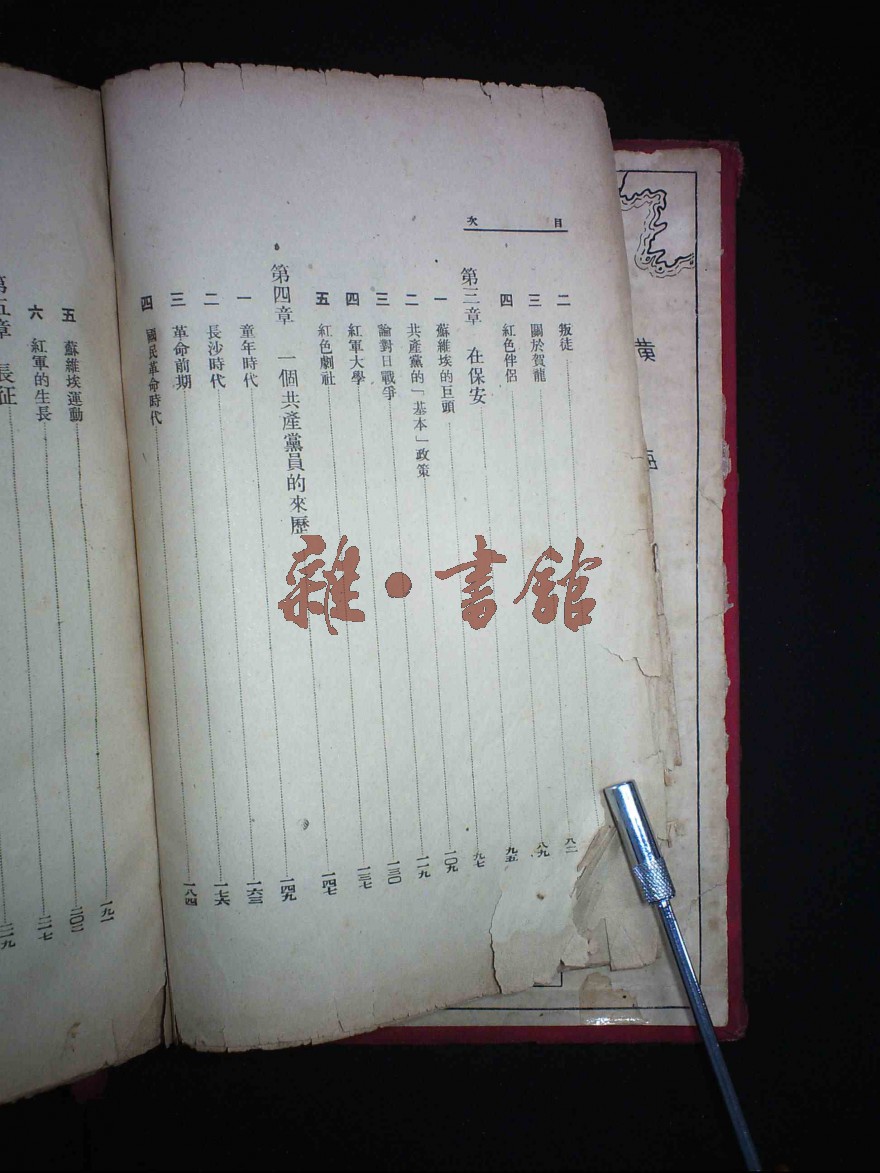 目次
二 叛徒
三 關於賀龍 八二
四 紅色伴侶 八九
第三章 在保安 九五
一 蘇維埃的巨頭 九七
二 共產黨的「基本」政策 一〇九
三 論對日戰爭 一一九
四 紅軍大學 一三〇
五 紅色劇社 一三七
第四章 一個共產黨員的來歷 一四七
一 童年時代 一四九
二 長沙時代 一六三
三 革命前期 一七六
四 國民革命時代 一八四
五 蘇維埃運動 一九一
六 紅軍的生長 二〇二
第五章 長征 二一七
二一九
雜·書館
黃